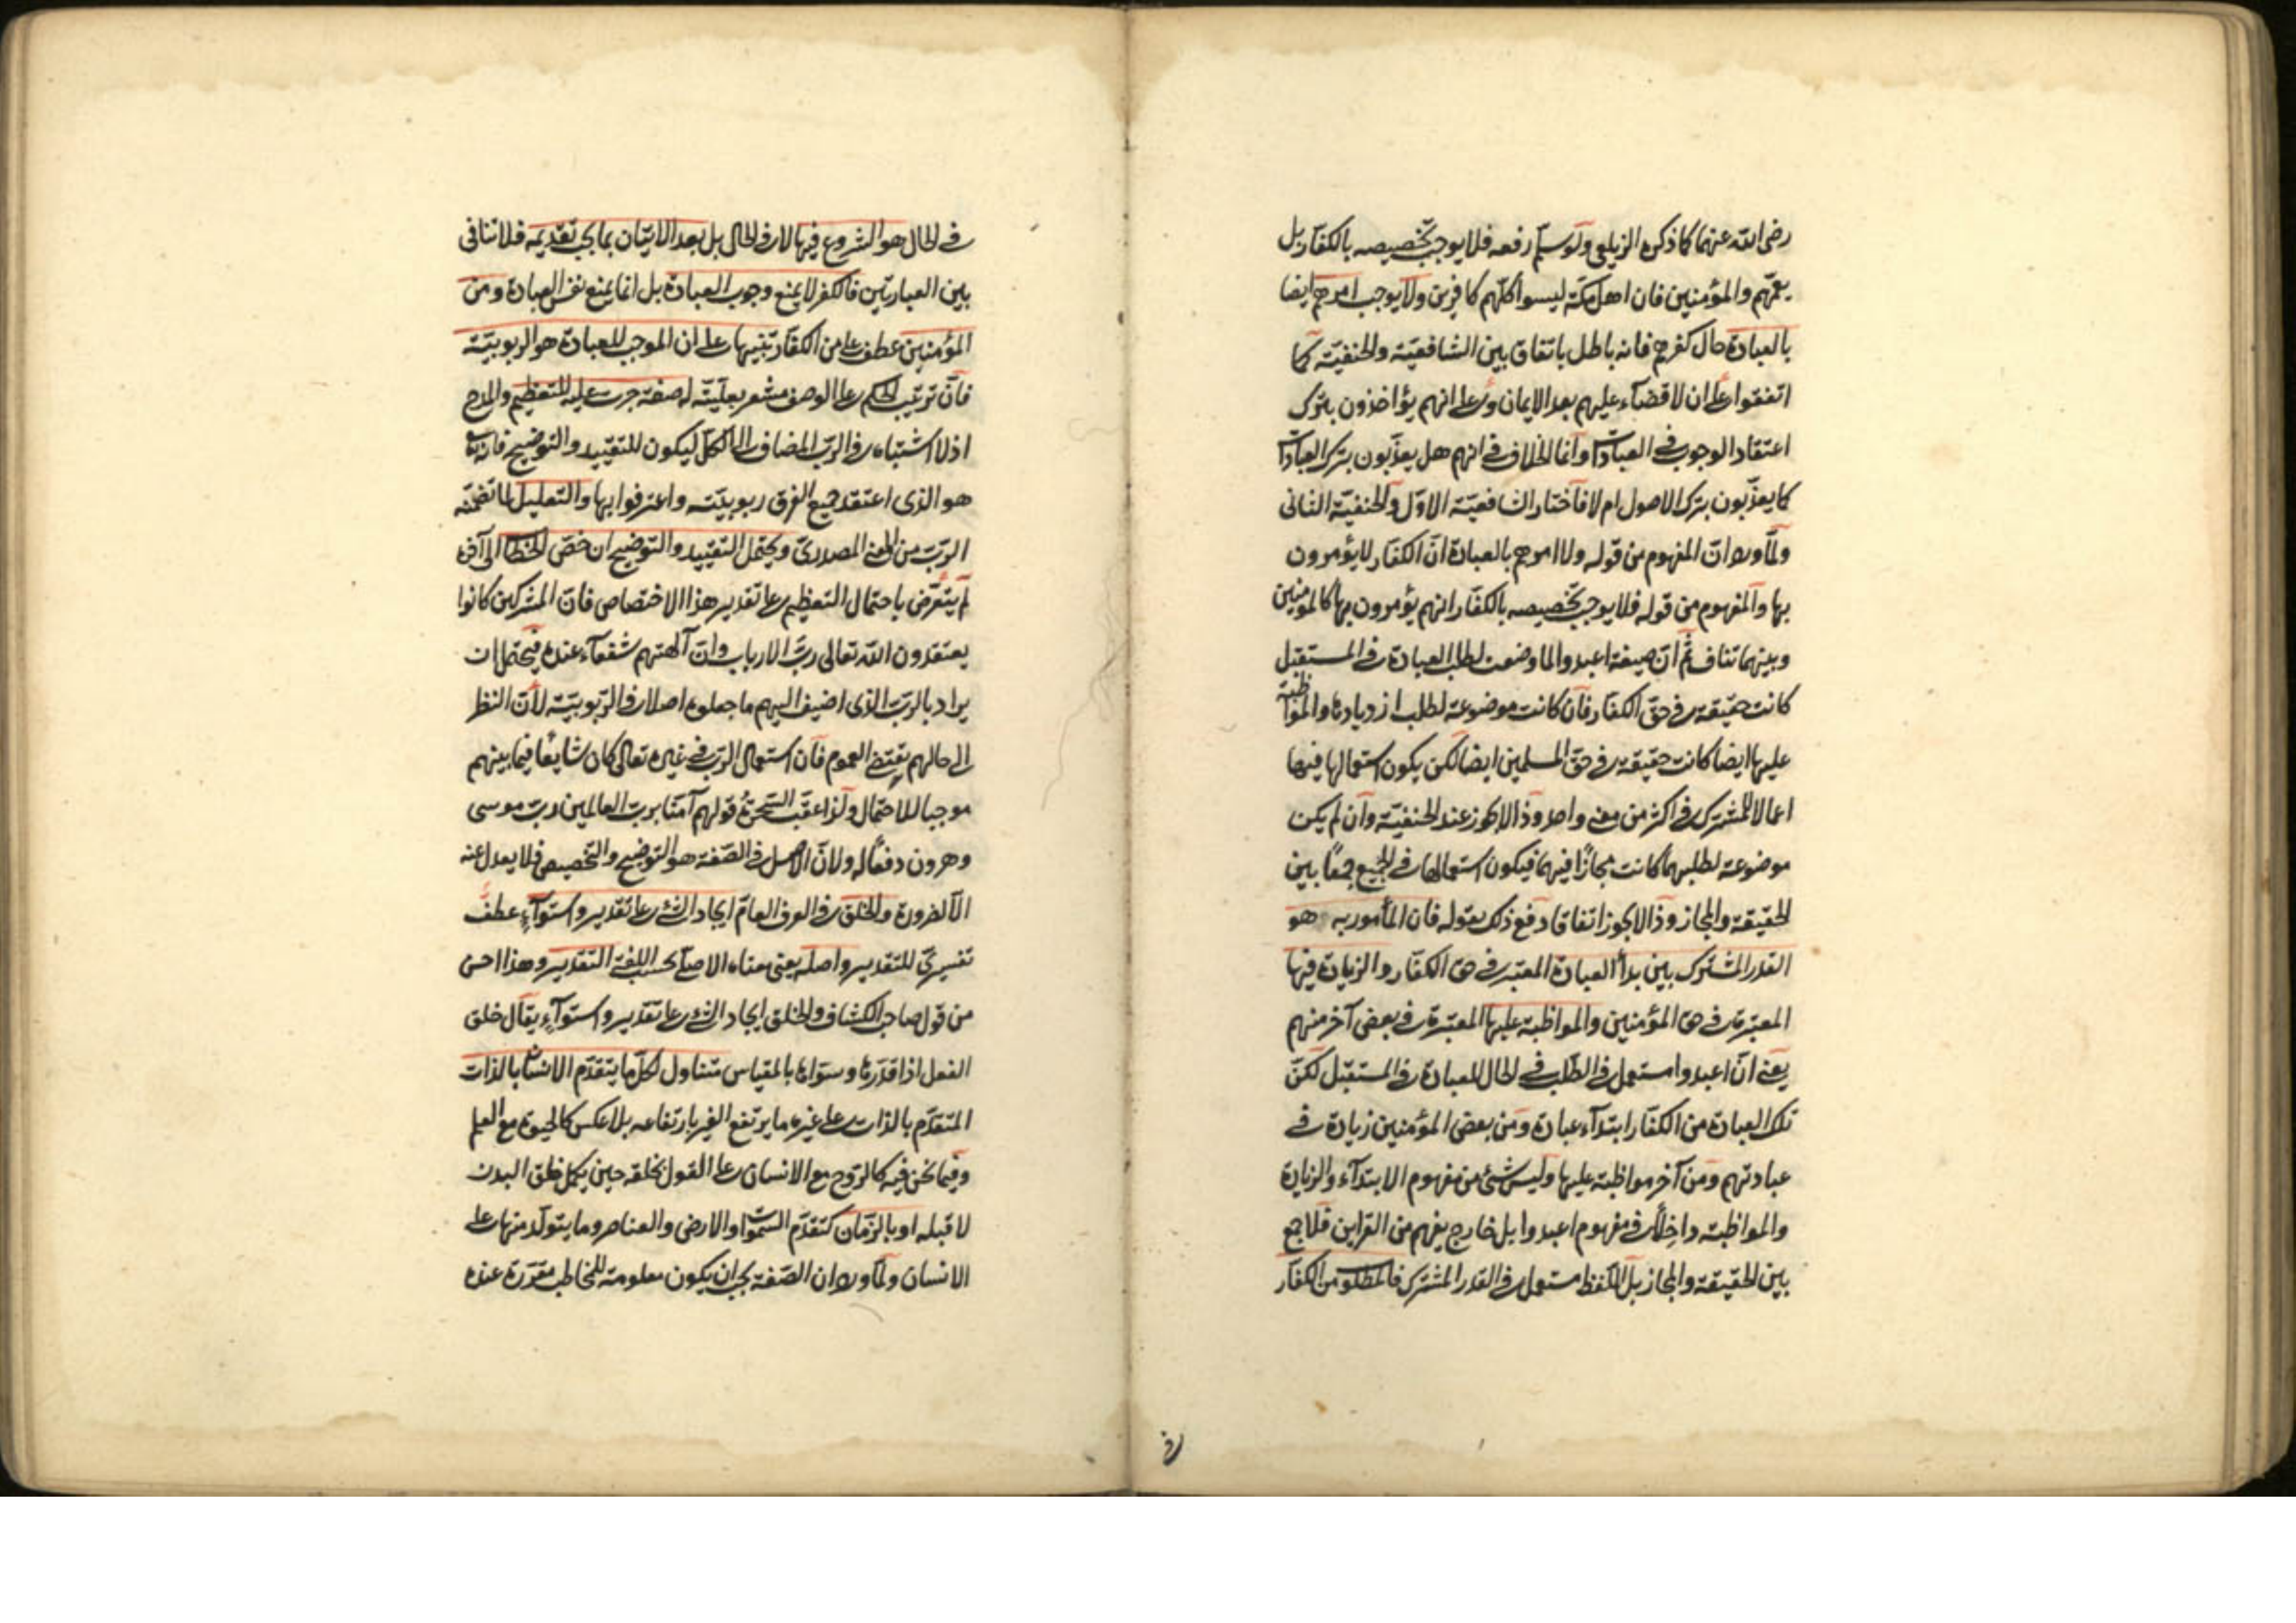 رضى الله عنهما كما ذكره الزيلعى ولو سلم رفعه فلا يوجب تخصيصه بالكفار بل
يعمهم والمؤمنين فان اهل مكة ليسوا كلهم كافرين ولا يوجب امرهم ايضا
بالعبادة حال كفرهم فانه باطل باتفاق بين الشافعية والحنفية كما
اتفقوا على ان لا قضآء عليهم بعد الايمان وعلى انهم يؤاخذون بترك
اعتقاد الوجوب فى العبادات وانما الخلاف فى انهم هل يعذبون بترك العبادات
كما يعذبون بترك الاصول ام لا فاختار الشافعية الاول والحنفية الثانى
ولما ورد ان المفهوم من قوله ولا امرهم بالعبادة ان الكفار لا يؤمرون
بها والمفهوم من قوله فلا يوجب تخصيصه بالكفار انهم يؤمرون بها كالمؤمنين
وبينهما تناف ثم ان صيغة اعبدوا لما وضعت لطلب العبادة فى المستقبل
كانت حقيقة فى حق الكفار فان كانت موضوعة لطلب ازديادها والمواظبة
عليها ايضا كانت حقيقة فى حق المسلمين ايضا لكن يكون استعمالها فيها
اعمالا للمشترك فى اكثر من معنى واحد وذا لا يجوز عند الحنفية وان لم يكن
موضوعة لطلبهما كانت مجازا فيهما فيكون استعمالها فى الجميع جمعا بين
الحقيقة والمجاز وذا لا يجوز اتفاقا دفع ذلك بقوله فان المأمور به هو
القدر المشترك بين بدأ العبادة المعتبر فى حق الكفار والزيادة فيها
المعتبرة فى حق المؤمنين والمواظبة عليها المعتبرة فى بعض آخر منهم
يعنى ان اعبدوا مستعمل فى الطلب فى الحال للعبادة فى المستقبل لكن
تلك العبادة من الكفار ابتدآء عبادة ومن بعض المؤمنين زيادة فى
عبادتهم ومن آخر مواظبة عليها وليس شئ من مفهوم الابتدآء والزيادة
والمواظبة داخلا فى مفهوم اعبدوا بل خارج يفهم من القراين فلا جمع
بين الحقيقة والمجاز بل اللفظ مستعمل فى القدر المشترك فالمطلوب من الكفار
فى
فى الحال هو الشروع فيها لا فى الحال بل بعد الاتيان بما يجب تقديمه فلا تنافى
بين العبارتين فالكفر لا يمنع وجوب العبادة بل انما يمنع نفس العبادة ومن
المؤمنين عطف على من الكفار تنبيها على ان الموجب للعبادة هو الربوبية
فان ترتيب الحكم على الوصف مشعر بعليته له صفة جرت عليه للتعظيم والمدح
اذ لا اشتباه فى الرب المضاف الى الكل ليكون للتقييد والتوضيح فانه
هو الذى اعتقد جميع الفرق ربوبيته واعترفوا بها والتعليل لما تضمنه
الرب من المعنى المصدرى ويحتمل التقييد والتوضيح ان خص الخطاب الى آخره
لم يتعرض باحتمال التعظيم على تقدير هذا الاختصاص فان المشركين كانوا
يعتقدون الله تعالى رب الارباب وان آلهتهم شفعآء عنده فيحتمل ان
يراد بالرب الذى اضيف اليهم ما جعلوه اصلا فى الربوبية لان النظر
الى حالهم يقتضى العموم فان استعمال الرب فى غيره تعالى كان شايعا فيما بينهم
موجبا للاحتمال ولذا عقب السحرة قولهم آمنا برب العالمين رب موسى
وهرون دفعا له ولان الاصل فى الصفة هو التوضيح والتخصيص فلا يعدل عنه
الا لضرورة والخلق فى العرف العام ايجاد الشئ على تقدير واستوآء عطف
تفسيرى للتقدير واصله يعنى معناه الاصلى بحسب اللغة التقدير وهذا احسن
من قول صاحب الكشاف والخلق ايجاد الشئ على تقدير واستوآء يقال خلق
النعل اذا قدرها وسواها بالمقياس متناول لكل ما يتقدم الانسان بالذات
المتقدم بالذات على غيره ما يرتفع الغير بارتفاعه بلا عكس كالحيوة مع العلم
وفيما نحن فيه كالروح مع الانسان على القول بخلقه حين يكمل خلق البدن
لا قبله او بالزمان كتقدم السموات والارض والعناصر وما يتولد منها على
الانسان ولما ورد ان الصفة يجب ان يكون معلومة للمخاطب مقررة عنده